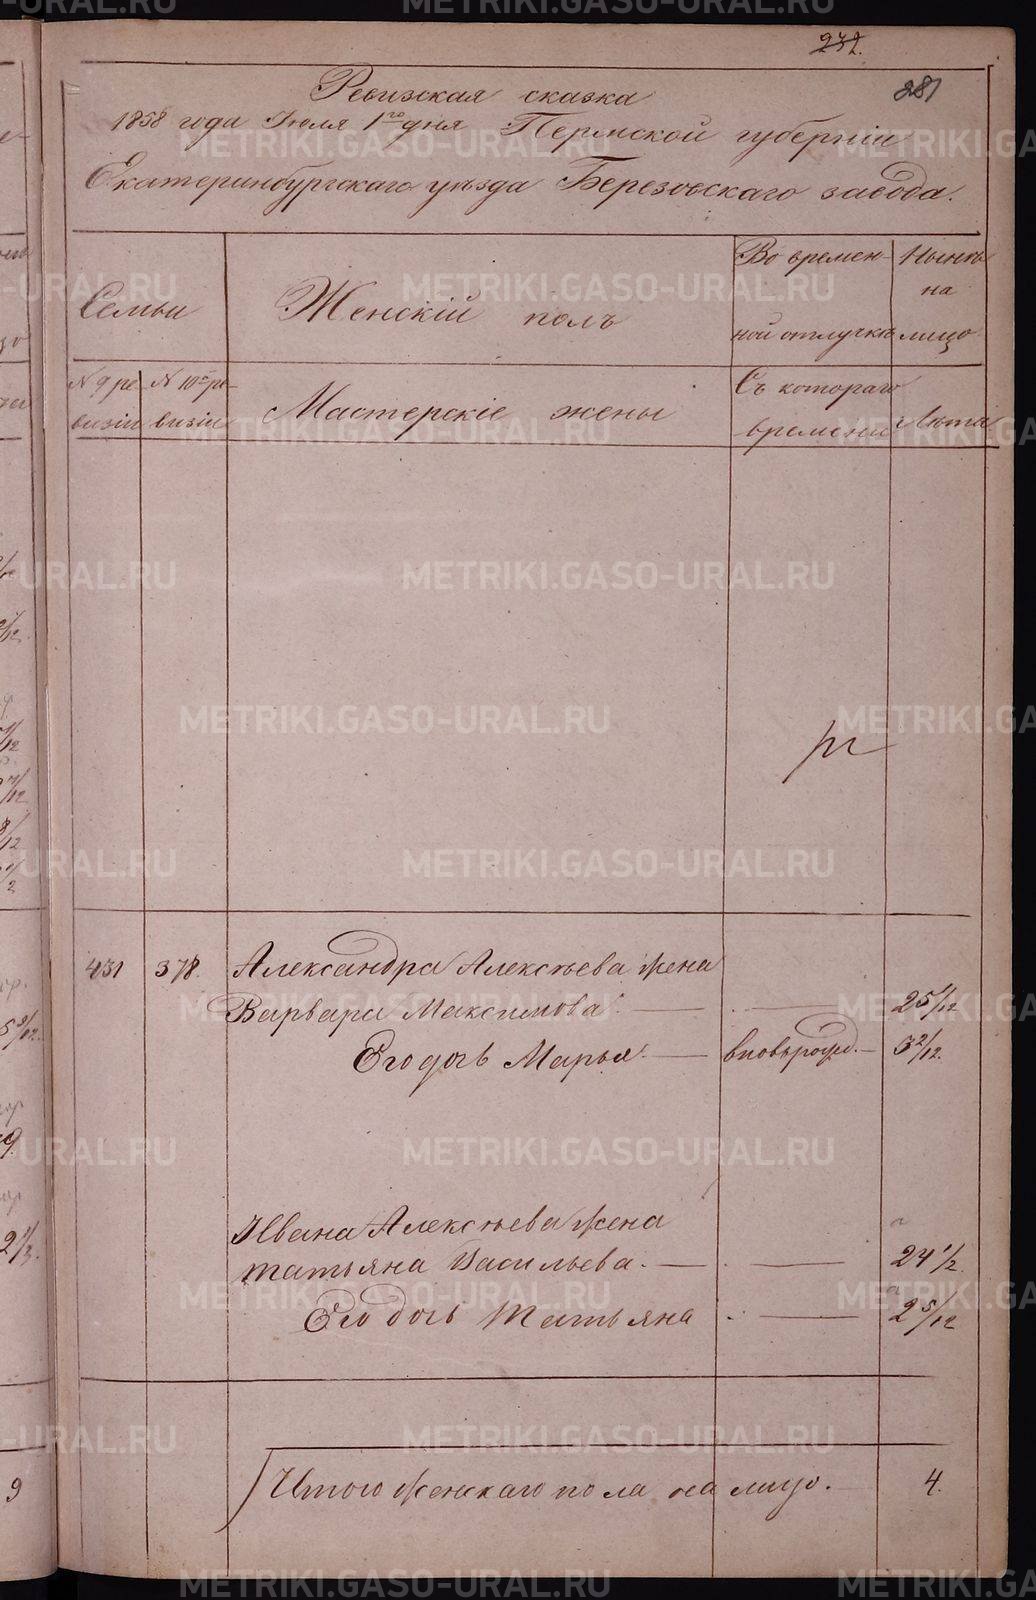 232.
281
Ревизская сказка
1858 года Июля 1го дня Пермской губерніи
Екатеринбургскаго уѣзда Березовскаго завода.
Семьи
Женскій полъ
Во времен-
ной отлучкѣ
Нынѣ
на
лицо
N 9 ре-
визіи
N 10й ре-
визіи
Мастерскіе жены
Съ котораго
времени
Лѣта
431 378. Александра Алексѣева жена
Варвара Максимова. 25 1/12
Его дочь Марья. вновьрожд. 3 2/12.
Ивана Алексѣева жена
Татьяна Васильева. 24 1/2
Его дочь Татьяна 2 5/12
Итого женскаго пола на лицо. 4.
METRIKI.GASO-URAL.RU